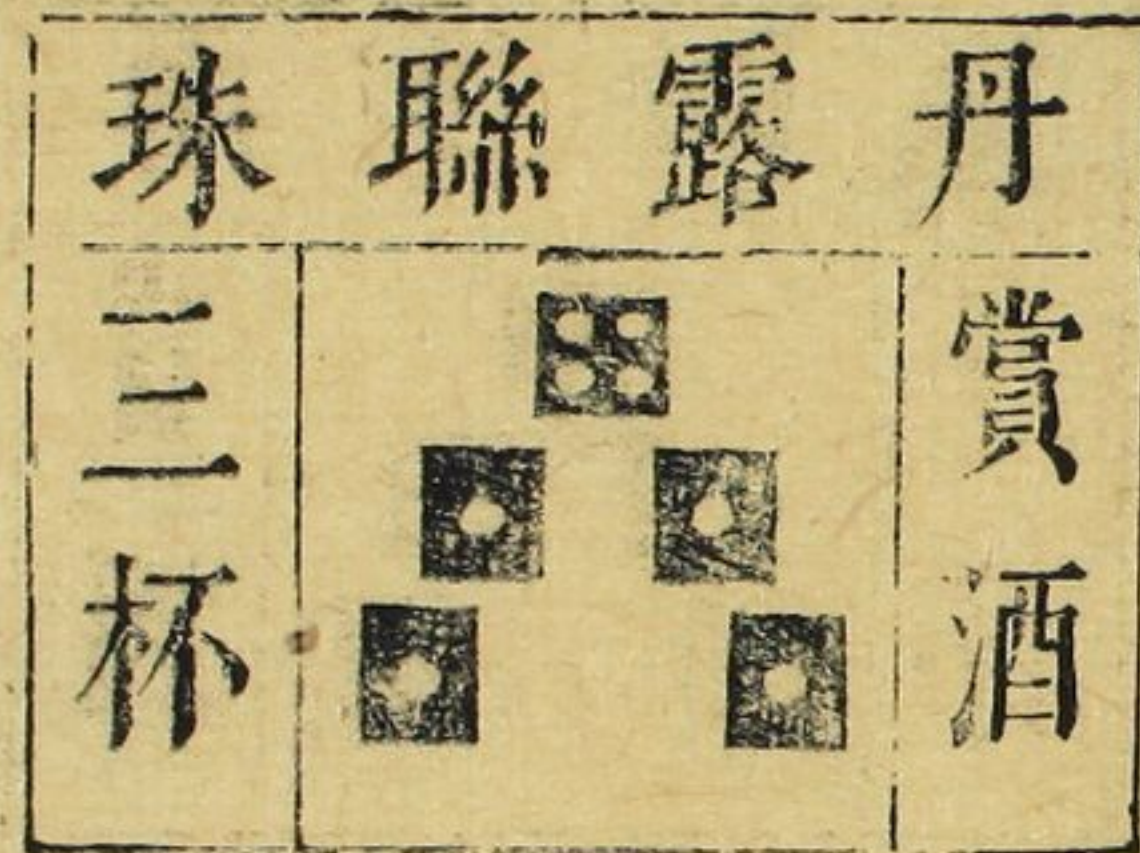 丹露聯珠
賞酒
三杯